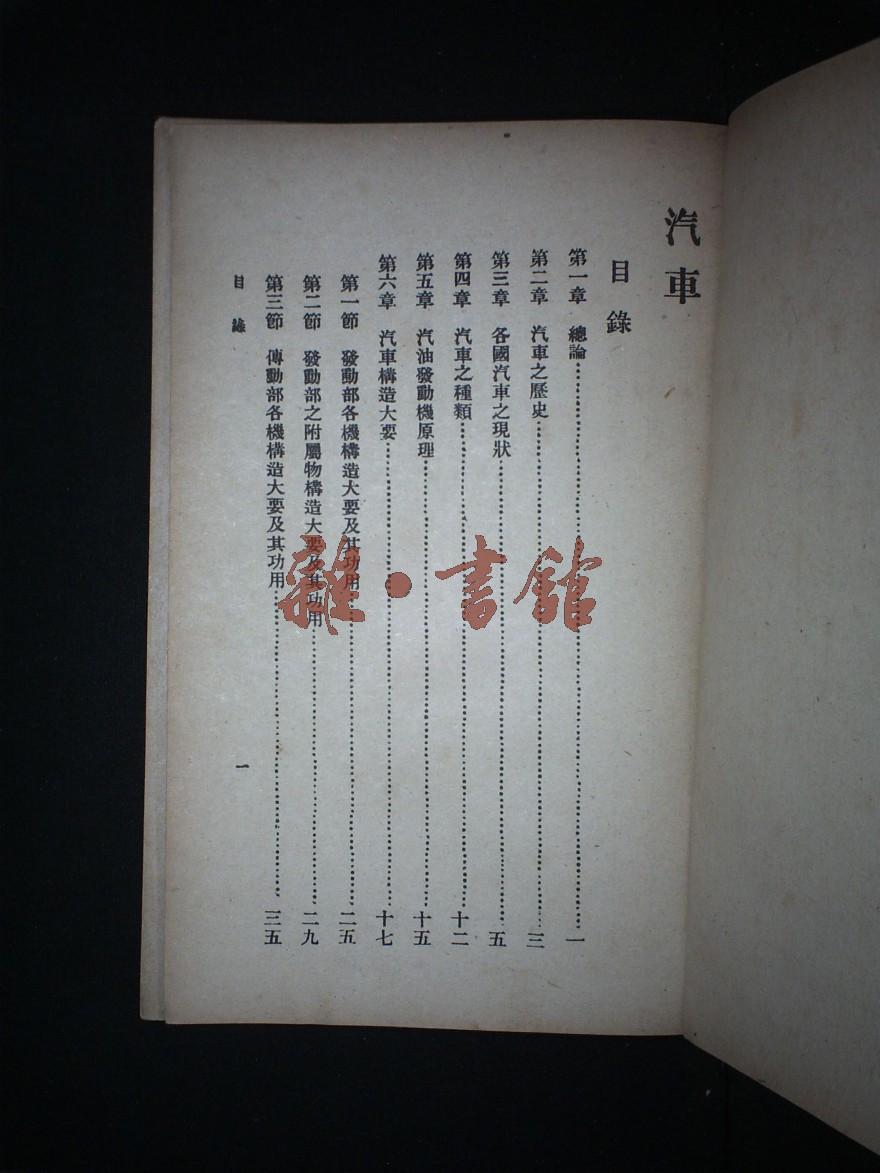 汽車
目錄
第一章 總論⋯⋯⋯⋯一
第二章 汽車之歷史⋯⋯⋯⋯三
第三章 各國汽車之現狀⋯⋯⋯⋯五
第四章 汽車之種類⋯⋯⋯⋯十二
第五章 汽油發動機原理⋯⋯⋯⋯十五
第六章 汽車構造大要⋯⋯⋯⋯十七
第一節 發動部各機構造大要及其功用⋯⋯⋯⋯二五
第二節 發動部之附屬物構造大要及其功用⋯⋯⋯⋯二九
第三節 傳動部各機構造大要及其功用⋯⋯⋯⋯三五
目錄 一
雜·書館